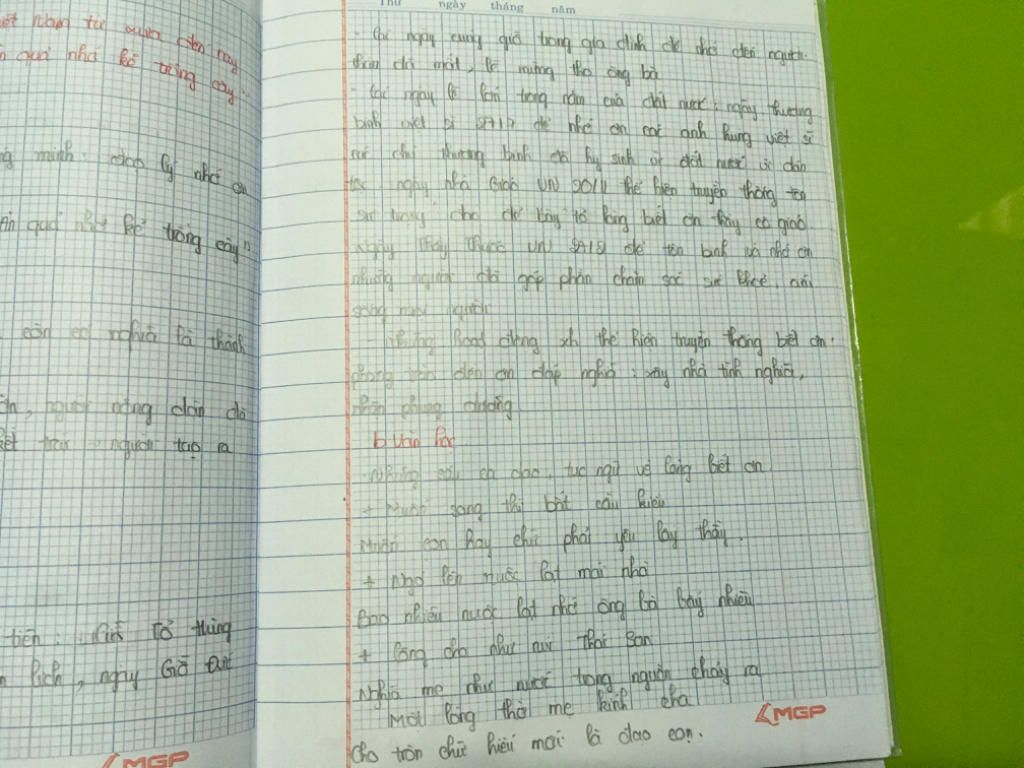 ệt Nam từ xưa đến nay
quả nhớ kẻ trồng cây
minh: đạo lý nhớ ơn
ăn quả nhớ kẻ trồng cây"
còn có nghĩa là thành
người nông dân đã
người tạo ra
tiên: Giỗ Tổ Hùng
lịch, ngày Giỗ
MGP
Thứ ngày tháng năm
- Các ngày cúng giỗ trong gia đình để nhớ đến người
thân đã mất, lễ mừng thọ ông bà
- Các ngày lễ lớn trong năm của đất nước: ngày thương
binh liệt sĩ 27/7 để nhớ ơn các anh hùng liệt sĩ
các chú thương binh đã hy sinh vì đất nước vì dân
tộc ngày nhà Giáo VN 20/11 thể hiện truyền thống tôn
sư trọng để bày tỏ lòng biết ơn thầy cô giáo.
Ngày Thầy Thuốc VN 27/2 để tôn vinh và nhớ ơn
những người đã góp phần chăm sóc sức khoẻ,
sống mọi người
- Những hoạt động xh thể hiện truyền thống biết ơn:
phong trào đền ơn đáp nghĩa: xây nhà tình nghĩa,
nhận phụng dưỡng
b Văn học
- Những câu ca dao, tục ngữ về lòng biết ơn
+ Muốn sang thì bắt cầu kiều
Muốn con hay chữ phải yêu lấy thầy.
+ Ngó lên nuộc lạt mái nhà
Bao nhiêu nuộc lạt nhớ ông bà bấy nhiêu
+ Công cha như núi Thái Sơn
Nghĩa mẹ như nước trong nguồn chảy ra
Một lòng thờ mẹ kính cha
Cho tròn chữ hiếu mới là đạo con.
MGP